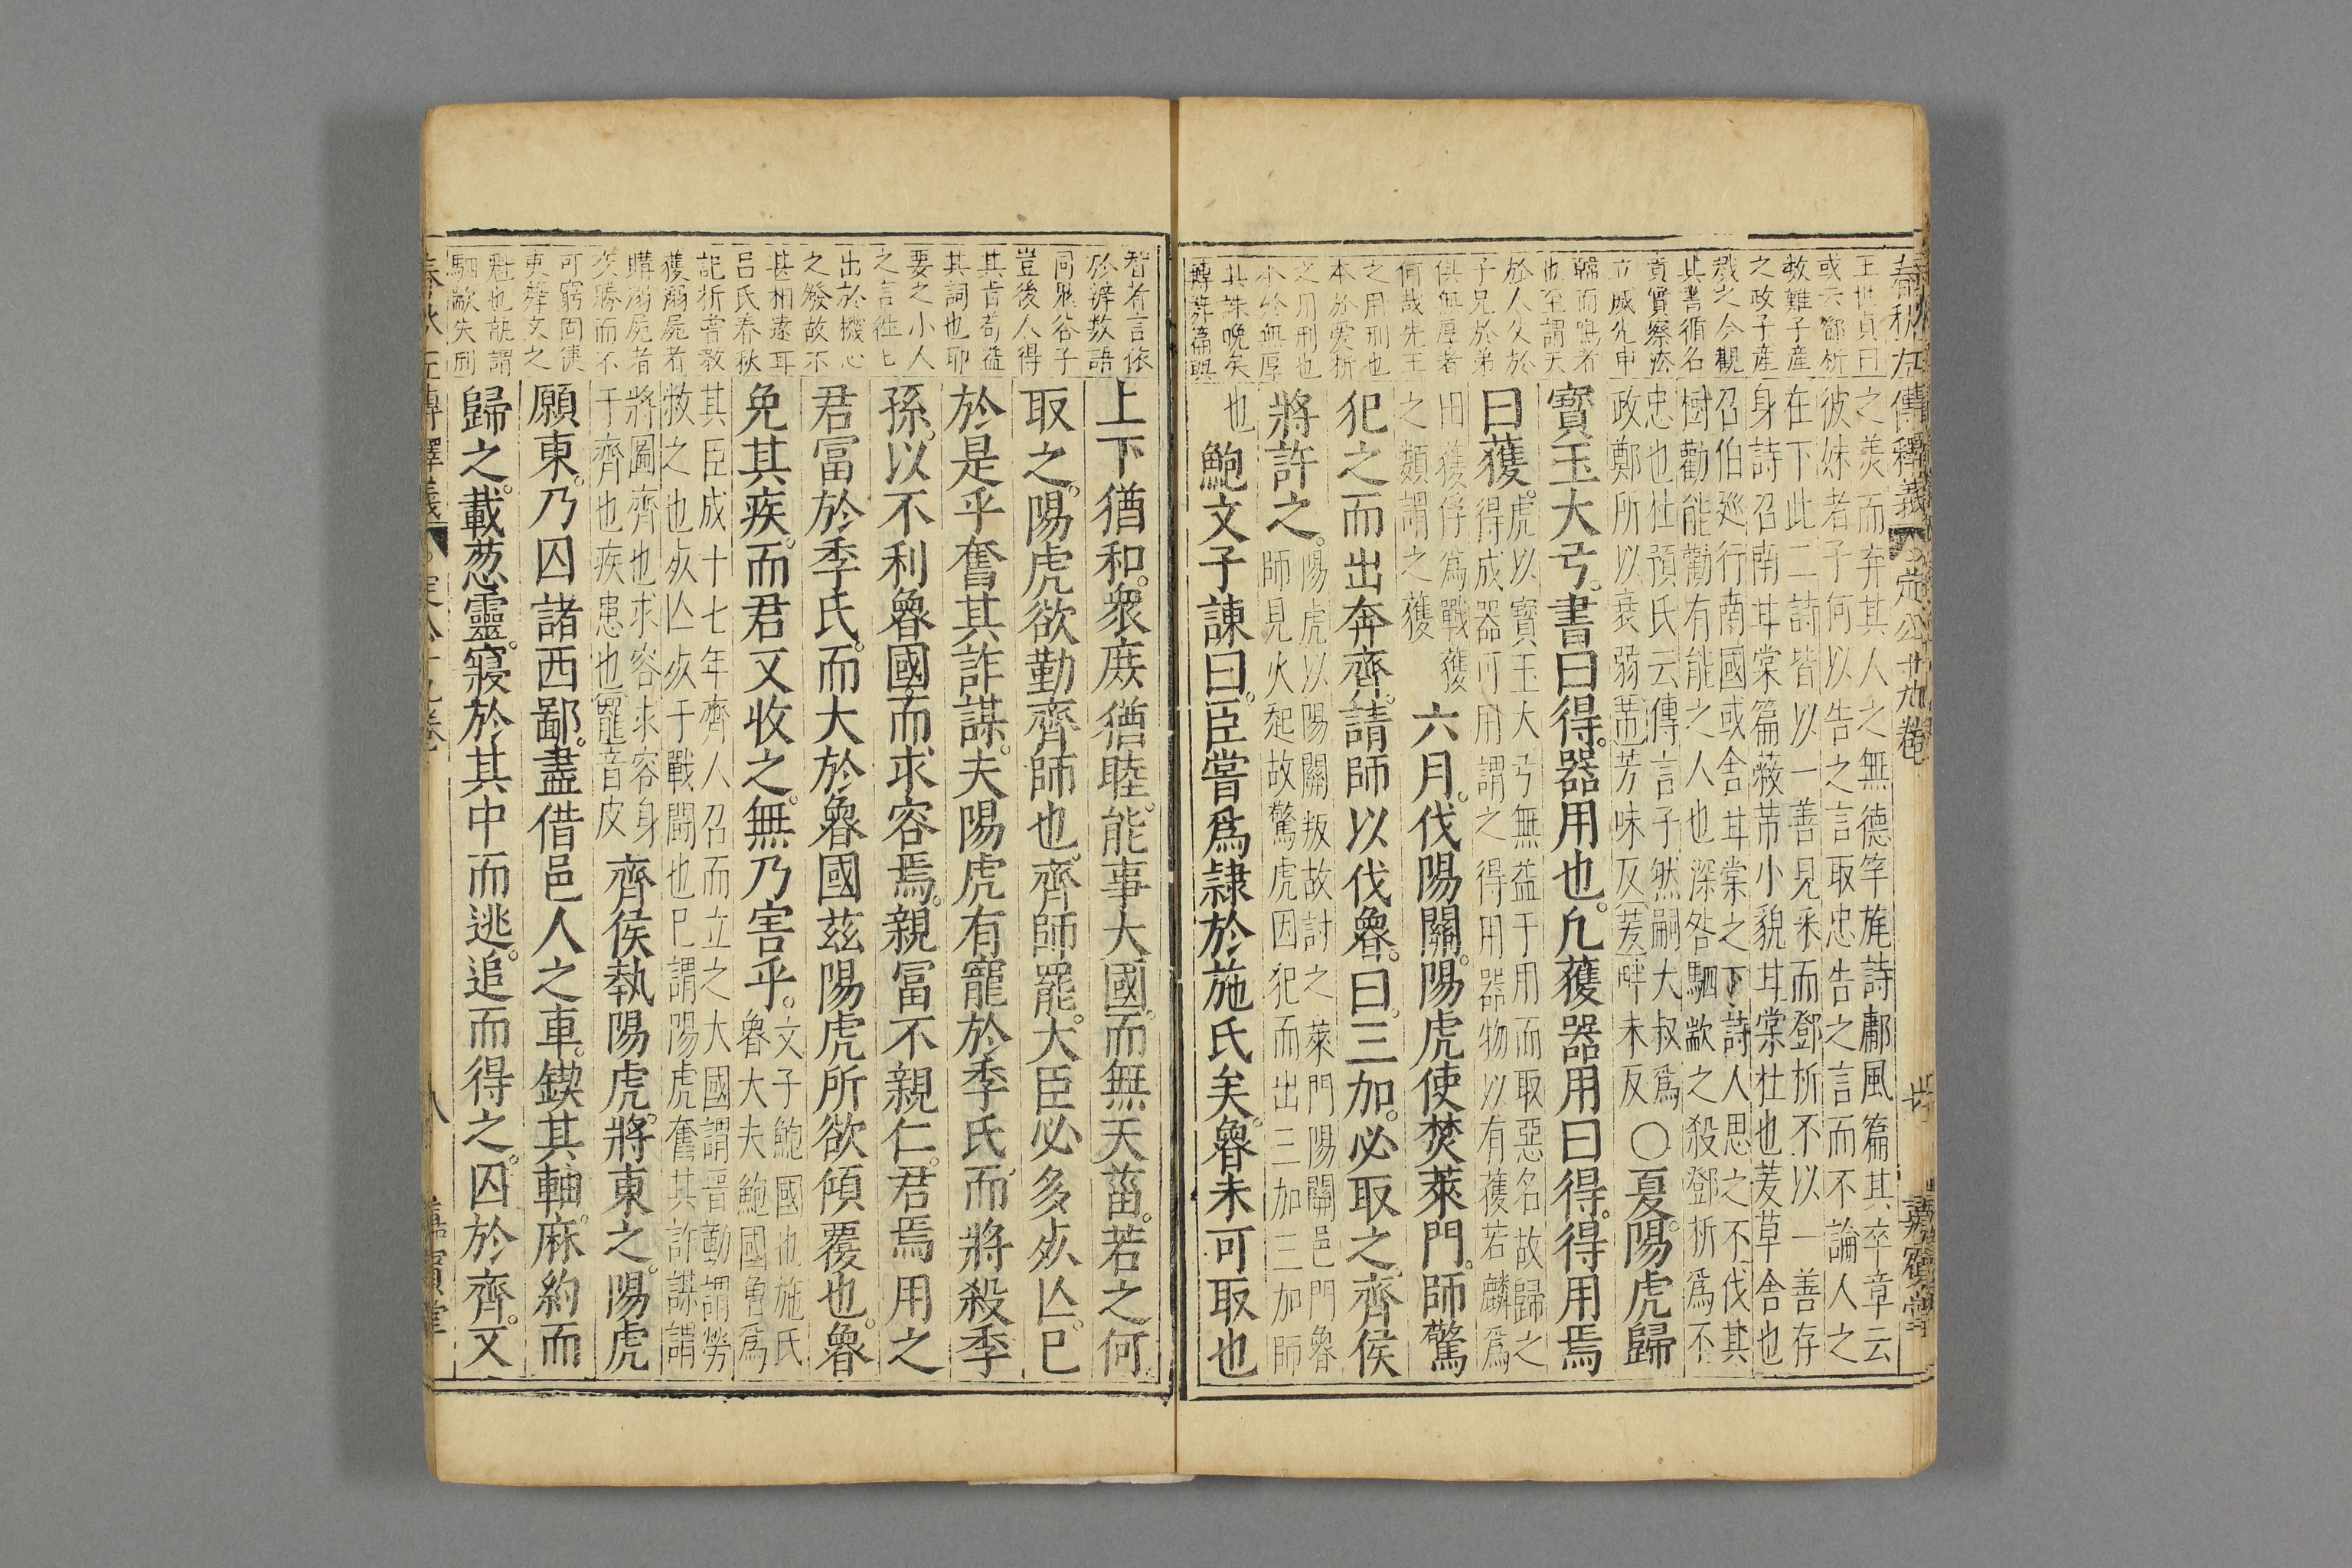 春秋左傳釋義 定公十九卷 七 嘉賓堂
王世貞曰
或云鄧析
教難子產
之政子產
戮之今觀
其書循名
責實察法
立威先申
韓而鳴者
也至謂天
於人父於
子兄於弟
俱無厚者
何哉先王
之用刑也
本於愛析
之用刑也
本於無厚
其誅晚矣
轉辟篇與
之羡而弃其人之無德竿旄詩鄘風篇其卒章云
彼妹者子何以告之言取忠告之言而不論人之
在下此二詩皆以一善見釆而鄧析不以一善存
身詩召南甘棠篇蔽芾小貌甘棠杜也茇草舍也
召伯廵行南國或舍甘棠之下詩人思之不伐其
樹勸能勸有能之人也深咎駟歂之殺鄧析爲不
忠也杜預氏云傳言子然嗣大叔爲
政鄭所以衰弱芾芳味反茇畔末反
○夏。陽虎歸
寶玉大弓。書曰得。器用也。凢獲器用曰得。得用焉
曰獲。
虎以寶玉大弓無益于用而取惡名故歸之
得成器可用謂之得用器物以有獲若麟爲
田獲俘爲戰獲
之類謂之獲
六月。伐陽關。陽虎使焚萊門。師驚
犯之而出奔齊。請師以伐魯。曰。三加。必取之。齊侯
將許之。
陽虎以陽關叛故討之萊門陽關邑門魯
師見火起故驚虎因犯而出三加三加師
也
鮑文子諫曰。臣嘗爲隷於施氏矣。魯未可取也
智者言依
於辯數語
同鬼谷子
豈後人得
其肯苟益
其詞也耶
要之小人
之言徃匕
出於機心
之發故不
甚相遠耳
呂氏春秋
記析嘗教
獲溺屍者
購溺屍者
矣勝而不
可窮固
吏舞文之
魁也誰謂
駟歂失刑
上下猶和。衆庻猶睦。能事大國。而無天菑。若之何
取之。陽虎欲勤齊師也。齊師罷。大臣必多死亾。巳
於是乎奮其詐謀。夫陽虎有寵於季氏。而將殺季
孫。以不利魯國。而求容焉。親富不親仁。君焉用之
君富於季氏。而大於魯國。兹陽虎所欲傾覆也。魯
免其疾。而君又收之。無乃害乎。
文子鮑國也施氏
魯大夫鮑國爲
其臣成十七年齊人召而立之大國謂晋勤謂勞
救之也死亾死于戰鬪也巳謂陽虎奮其詐謀謂
將圖齊也求容求容身
于齊也疾患也罷音皮
齊侯執陽虎。將東之。陽虎
願東。乃囚諸西鄙。盡借邑人之車。鍥其軸。麻約而
歸之。載葱靈。寢於其中而逃。追而得之。囚於齊。又
春秋左傳釋義 定公十九卷 八 嘉賓堂